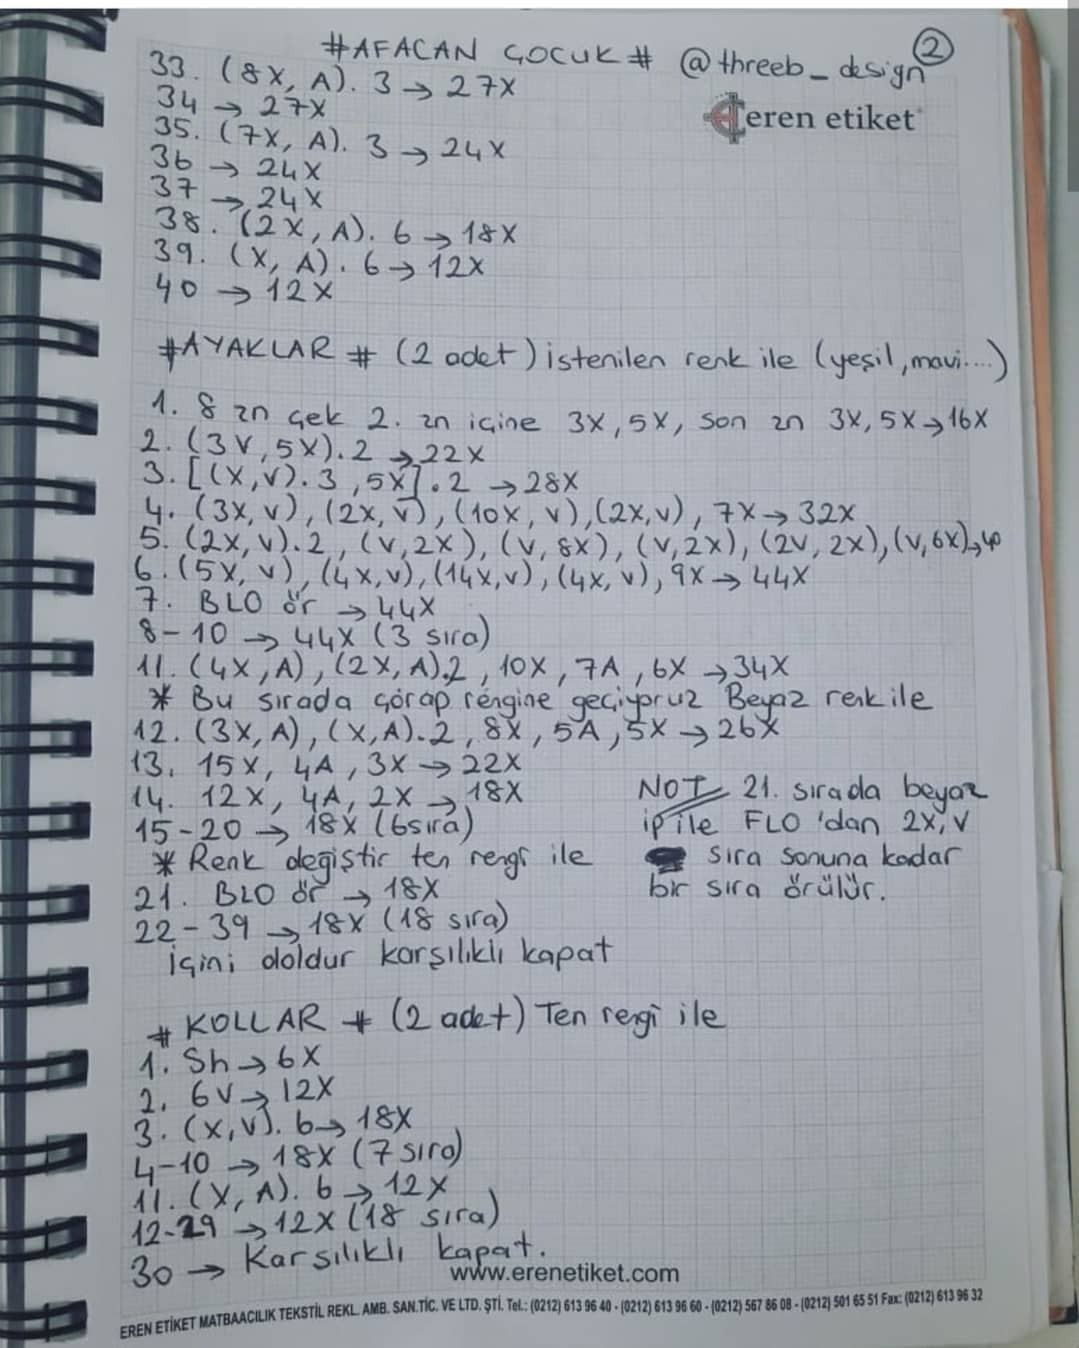 #AFACAN ÇOCUK# @threeb_design ②
eren etiket
33. (8X, A). 3 → 27X
34 → 27X
35. (7X, A). 3 → 24X
36 → 24X
37 → 24X
38. (2X, A). 6 → 18X
39. (X, A). 6 → 12X
40 → 12X
#AYAKLAR # (2 adet) istenilen renk ile (yeşil, mavi....)
1. 8 zn çek 2. zn içine 3X, 5X, son zn 3X, 5X → 16X
2. (3V, 5X). 2 → 22X
3. [(X, V). 3, 5X]. 2 → 28X
4. (3X, V), (2X, V), (10X, V), (2X, V), 7X → 32X
5. (2X, V). 2, (V, 2X), (V, 8X), (V, 2X), (2V, 2X), (V, 6X) → 40
6. (5X, V), (4X, V), (14X, V), (4X, V), 9X → 44X
7. BLO ör → 44X
8-10 → 44X (3 sıra)
11. (4X, A), (2X, A). 2, 10X, 7A, 6X → 34X
* Bu sırada çorap rengine geçiyoruz Beyaz renk ile
12. (3X, A), (X, A). 2, 8X, 5A, 5X → 26X
13. 15X, 4A, 3X → 22X
14. 12X, 4A, 2X → 18X
15-20 → 18X (6 sıra)
* Renk değiştir ten rengi ile
21. BLO ör → 18X
22-39 → 18X (18 sıra)
İçini doldur karşılıklı kapat
NOT 21. sırada beyaz
ip ile FLO 'dan 2X, V
sıra sonuna kadar
bir sıra örülür.
# KOLLAR # (2 adet) Ten rengi ile
1. Sh → 6X
2. 6V → 12X
3. (X, V). 6 → 18X
4-10 → 18X (7 sıra)
11. (X, A). 6 → 12X
12-29 → 12X (18 sıra)
30 → Karşılıklı kapat.
www.erenetiket.com
EREN ETİKET MATBAACILIK TEKSTİL REKL. AMB. SAN.TİC. VE LTD. ŞTİ. Tel.: (0212) 613 96 40 - (0212) 613 96 60 - (0212) 567 86 08 - (0212) 501 65 51 Fax: (0212) 613 96 32